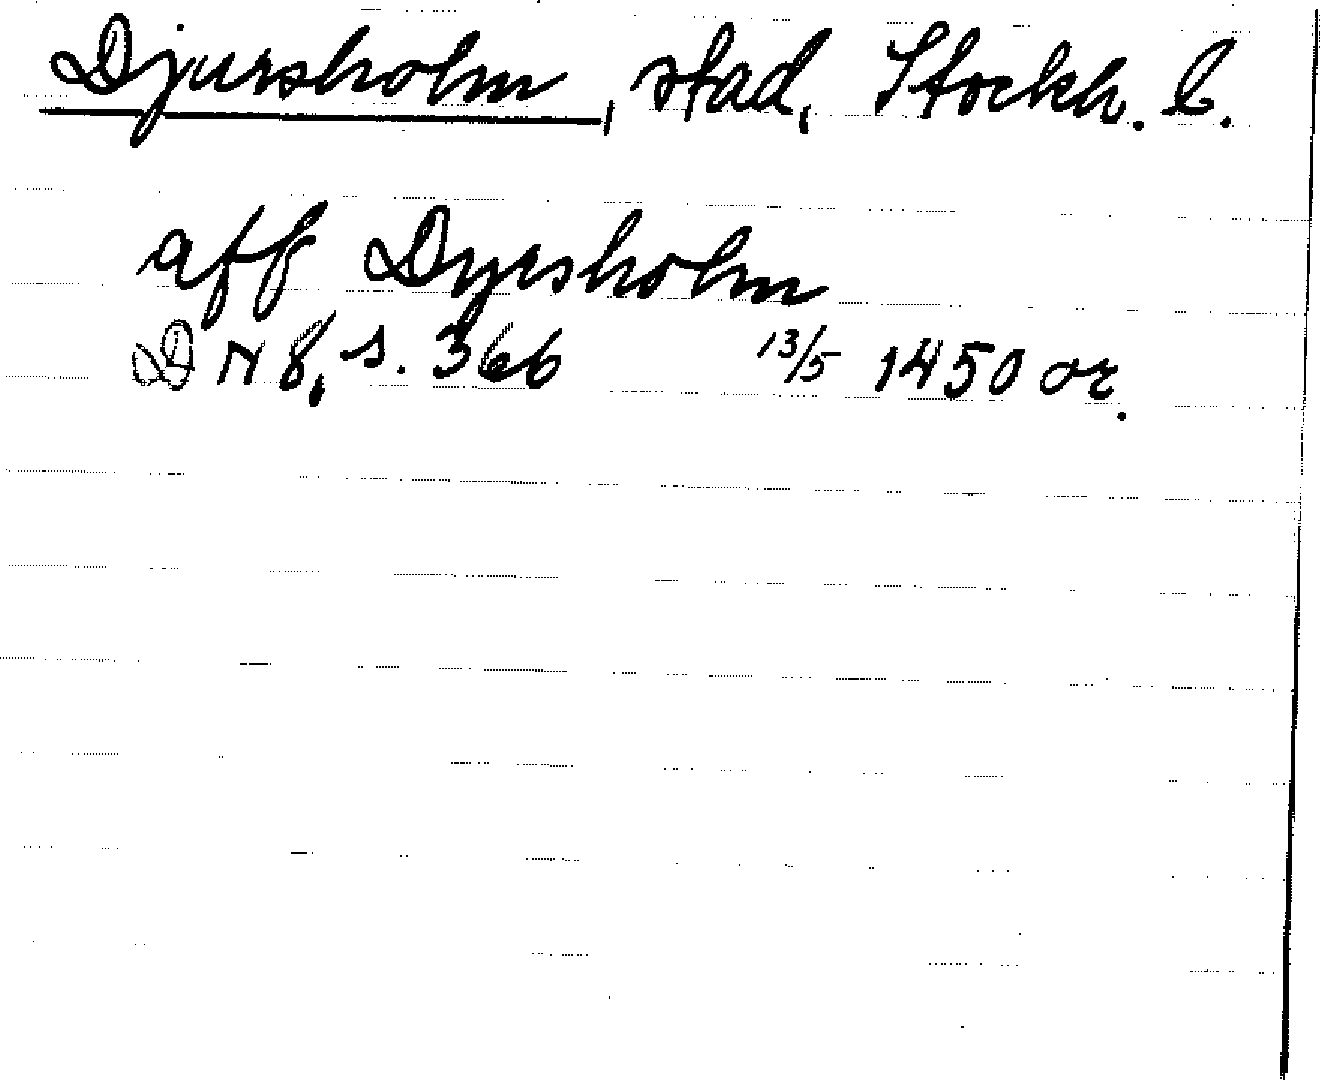 Djursholm, stad, Stockh. l.
aff Dyrsholm
DN 8, s. 366 13/5 1450 or.